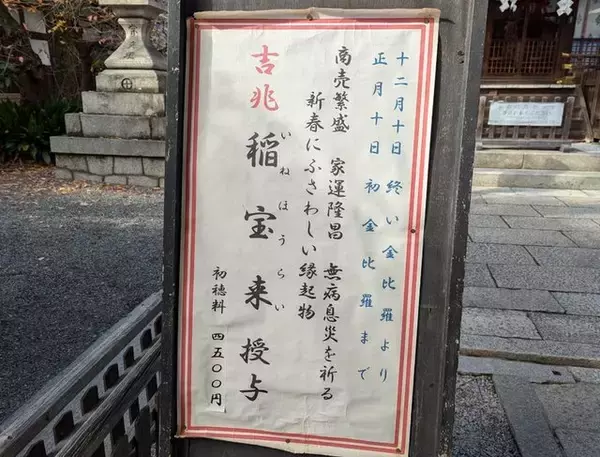 十二月十日 終い金比羅より
正月十日 初金比羅まで
商売繁盛 家運隆昌 無病息災を祈る
新春にふさわしい縁起物
吉兆 稲宝来授与
いねほうらい
初穂料 四五〇〇円